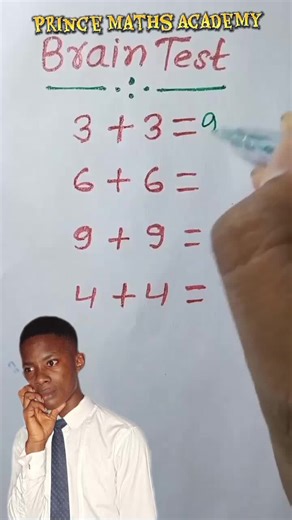 PRINCE MATHS ACADEMY
Brain Test
3+3=9
6+6=
9+9=
4+4=